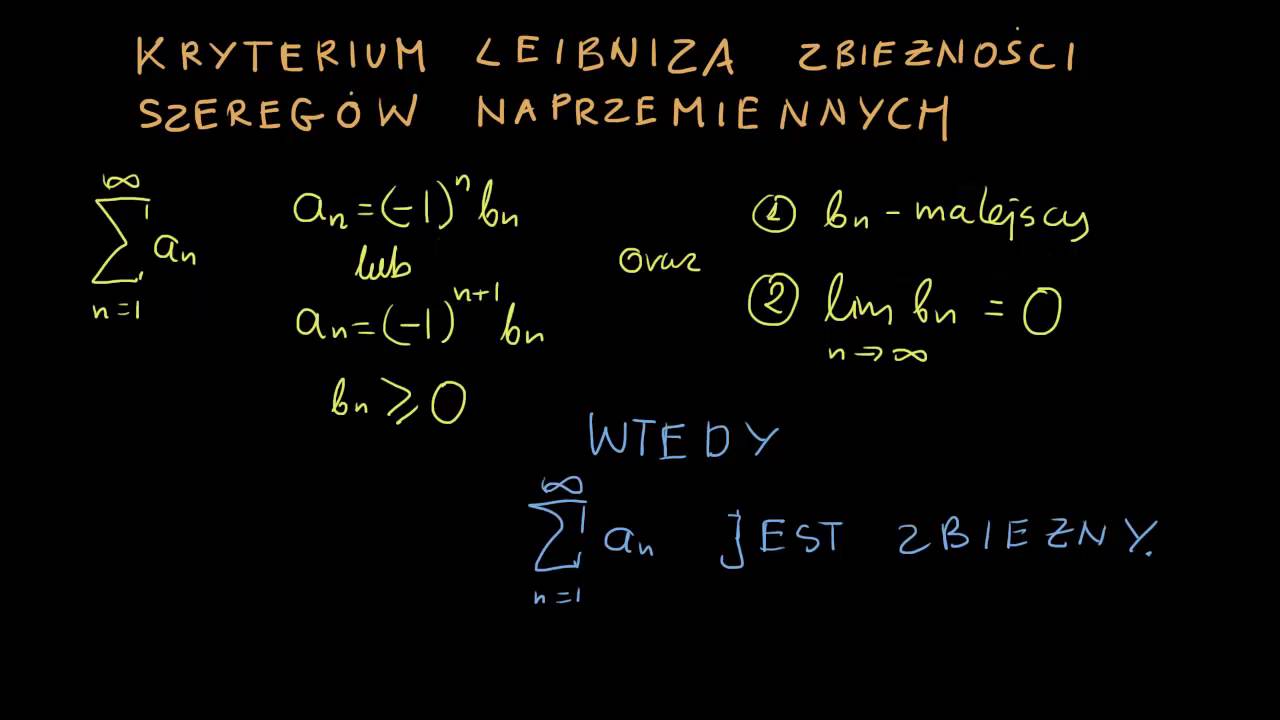 KRYTERIUM LEIBNIZA ZBIEŻNOŚCI
SZEREGÓW NAPRZEMIENNYCH
∞
∑ aₙ
n=1
aₙ = (-1)ⁿ bₙ
lub
aₙ = (-1)ⁿ⁺¹ bₙ
bₙ ⩾ 0
oraz
① bₙ - malejscy
② lim bₙ = 0
n→∞
WTEDY
∞
∑ aₙ JEST ZBIEŻNY.
n=1